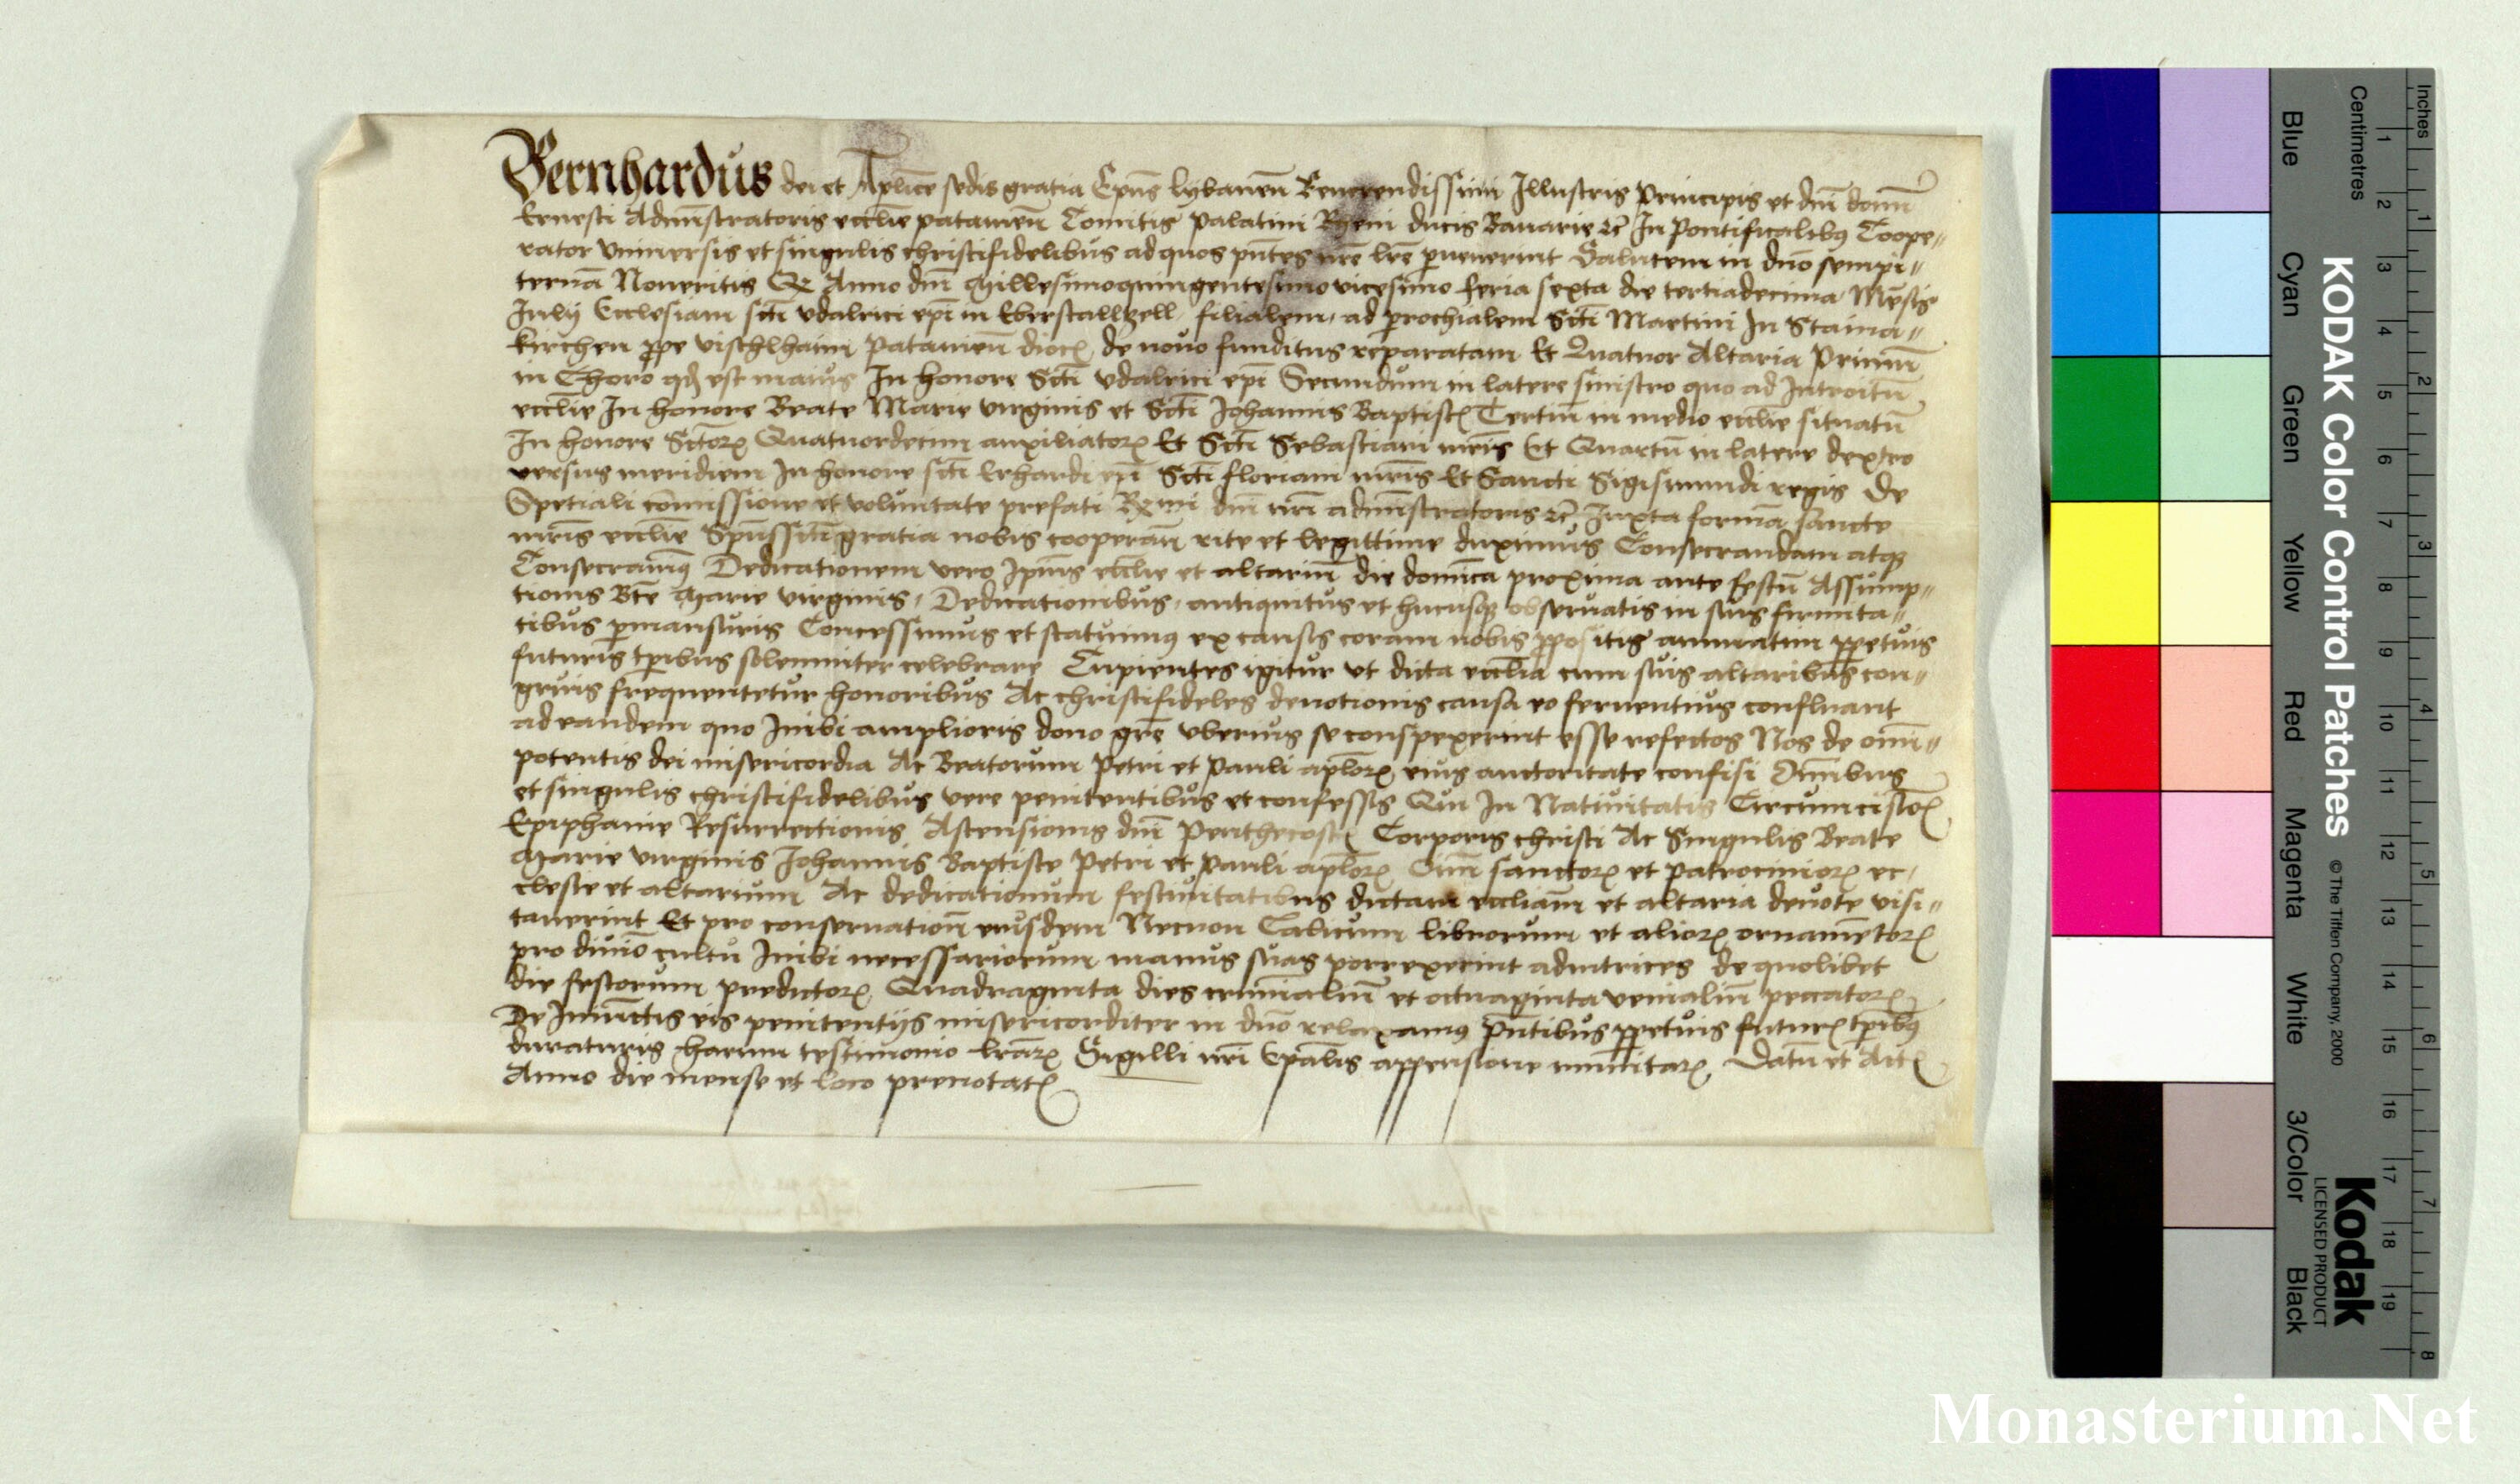 Bernhardus dei et Aplice sedis gratia Epus lybanen Reuerendissimi Illustris Principis et dni domni
Ernesti Adminstratoris ecclie patauien Comitis palatini Rheni ducis Bauarie zc In Pontificalibus Coope„
rator Vniuersis et singulis christifidelibus ad quos pntes nre lre peruenerint Salutem in dno sempi„
ternam Noueritis Q Anno dni Millesimoquingentesimovicesimo feria sexta die tertiadecima Mensis
Iulij Ecclesiam scti vdalrici epi in Eberstallzell, filialem, ad prochialem Scti Martini In Staina„
kirchen prope vischlhaim Patauien dioc de nouo funditus reparatam Et Quatuor Altaria Primum
in Choro qd est maius In honore Scti vdalrici epi Secundum in latere sinistro quo ad Introitum
ecclie In honore Beate Marie virginis et Scti Johannis Baptiste Tertium in medio ecclie situatum
In honore Sctorum Quatuordecim auxiliatorum Et Scti Sebastiani mris Et Quartum in latere dextro
versus meridiem In honore scti Erhardi epi Scti floriani mris Et Sancti Sigismundi regis De
Spetiali comissione et voluntate prefati Rmi dni nri adminstratoris zc Iuxta formam sancte
mris ecclie Spussancti gratia nobis cooperan rite et legittime duximus Consecrandam atque
Consecrauimus Dedicationem vero Ipius ecclie et altarium die dominca proxima ante festum Assump„
tionis Bte Marie virginis, Dedicationibus, antiquitus et hucusque obseruatis in suis firmita„
tibus permansuris Concessimus et statuimus ex causis coram nobis propositis annuatim perpetuis
futuris tpribus solemniter celebrare Cupientes igitur vt dicta ecclia cum suis altaribus con„
gruis frequentetur honoribus Ac christifideles deuotionis causa eo feruentius confluant
ad eandem quo Inibi amplioris dono gre vberius se conspexerint esse refectos Nos de omi„
potentis dei misericordia Ac Beatorum Petri et Pauli aplorum eius auctoritate confisi Omnibus
et singulis christifidelibus vere penitentibus et confessis Qui In Natiuitatis Circumcision
Epiphanie Resurrectionis Ascensionis dni Penthecost Corporis christi Ac Singulis Beate
Marie virginis Johannis Baptiste Petri et Pauli aplorum Omni sanctorum et patrociniorum ec,
clesie et altarium Ac dedicationum festiuitatibus dictam eccliam et altaria deuote visi„
tauerint Et pro conseruation eiusdem Necnon Calicum librorum et aliorum ornamentorum
pro diuino cultu Inibi necessariorum manus suas porrexerint adiutrices de quolibet
die festorum predictorum Quadraginta dies criminalium et octuaginta venialium peccatorum
De Iniunctis eis penitentijs misericorditer in dno relaxamus pntibus perpetuis futuris tpribus
duraturis harum testimonio lrarum Sigilli nri Epalis appensione munitarum Datum et Act
Anno die mense et loco prenotat
Inches
Centimetres
KODAK Color Control Patches © The Tiffen Company, 2000
Kodak
LICENSED PRODUCT
Blue Cyan Green Yellow Red Magenta White 3/Color Black
1 2 3 4 5 6 7 8 9 10 11 12 13 14 15 16 17 18 19
1 2 3 4 5 6 7 8
Monasterium.Net